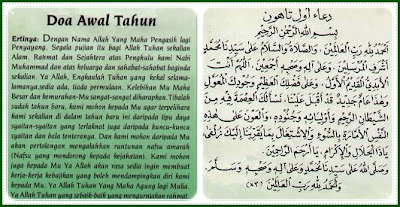 Doa Awal Tahun
Ertinya: Dengan Nama Allah Yang Maha Pengasih lagi
Penyayang. Segala pujian itu bagi Allah Tuhan Sekalian
Alam, Rahmat dan Sejahtera atas Penghulu kami Nabi
Muhammad dan atas keluarga dan sahabat-sahabat baginda
sekalian. Ya Allah, Engkaulah Tuhan yang kekal selama-
lamanya,sedia ada, tiada permulaan. Kelebihan Mu Maha
Besar dan kemurahan-Mu sangat-sangat diharapkan.Tibalah
sudah tahun baru, kami mohon kepada Mu agar terpelihara
kami sekalian di dalam tahun baru ini daripada tipu daya
syaitan-syaitan yang terlaknat juga daripada kuncu-kuncu
syaitan dan bala tenteranya. Dan kami mohon kepada Mu akan
pertolongan mengalahkan runtunan nafsu amarah
(Nafsu yang mendorong kepada kejahatan). Kami mohon
juga kepada Mu Ya Allah akan rasa sedia ingin membuat
kerja-kerja kebajikan yang boleh mendampingkan diri kami
kepada Mu Ya Allah Tuhan Yang Maha Agung lagi Mulia.
Ya Allah Tuhan yang sebaik-baik yang mengurniakan rahmat
دعاء اول تاهون
بِسْمِ اللهِ الرَّحْمٰنِ الرَّحِيْمِ
اَلْحَمْدُ لِلّٰهِ رَبِّ الْعَالَمِيْنَ. وَالصَّلَاةُ وَالسَّلَامُ عَلَى سَيِّدِنَا مُحَمَّدٍ
اَشْرَفِ الْمُرْسَلِيْنَ. وَعَلَى اٰلِهِ وَصَحْبِهِ اَجْمَعِيْنَ. اَللّٰهُمَّ اَنْتَ
الْاَبَدِيُّ الْقَدِيْمُ الْاَوَّلُ. وَعَلَى فَضْلِكَ الْعَظِيْمِ وَجُوْدِكَ الْمُعَوَّلُ
وَهٰذَا عَامٌ جَدِيْدٌ قَدْ اَقْبَلَ عَلَيْنَا. نَسْأَلُكَ الْعِصْمَةَ فِيْهِ مِنَ
الشَّيْطَانِ الرَّجِيْمِ وَاَوْلِيَائِهِ وَجُنُوْدِهِ. وَالْعَوْنَ عَلَى هٰذِهِ
النَّفْسِ الْاَمَّارَةِ بِالسُّوْءِ وَالْاِشْتِغَالِ بِمَا يُقَرِّبُنَا اِلَيْكَ زُلْفَى
يَا ذَا الْجَلَالِ وَالْاِكْرَامِ. يَا اَرْحَمَ الرَّاحِمِيْنَ.
وَصَلَّى اللهُ عَلَى سَيِّدِنَا مُحَمَّدٍ وَعَلَى اٰلِهِ وَصَحْبِهِ وَسَلَّمَ
وَالْحَمْدُ لِلّٰهِ رَبِّ الْعَالَمِيْنَ